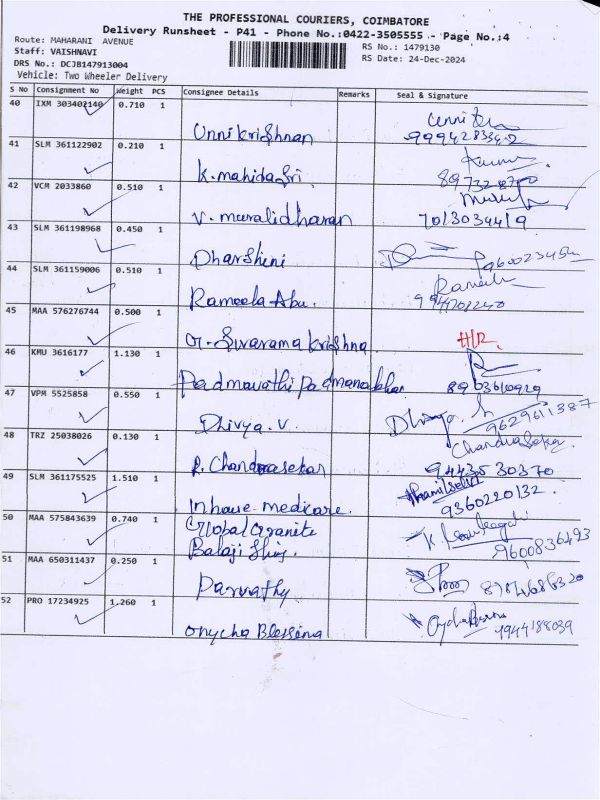 THE PROFESSIONAL COURIERS, COIMBATORE
Delivery Runsheet - P41 - Phone No.:0422-3505555 - Page No.:4
Route: MAHARANI AVENUE
RS No.: 1479130
Staff: VAISHNAVI
RS Date: 24-Dec-2024
DRS No.: DCJB147913004
Vehicle: Two Wheeler Delivery
S No Consignment No Weight PCS Consignee Details Remarks Seal & Signature
40 IXM 303402140 0.710 1
Unnikrishnan
41 SLM 361122902 0.210 1
K. mahidasri
42 VCM 2033860 0.510 1
V. muralidharan 7013034419
43 SLM 361198968 0.450 1
Dharshini
44 SLM 361159006 0.510 1
Rameela Abu.
45 MAA 576276744 0.500 1
G. Sivaramakrishna H/R
46 KMU 3616177 1.130 1
Padmavathi Padmanabhan
47 VPM 5525858 0.550 1
Dhivya. V 9629611387
48 TRZ 25038026 0.130 1
P. Chandrasekar 9443530370
49 SLM 361175525 1.510 1
Thamilselvi
Inhouse medicare. 9360220132
50 MAA 575843639 0.740 1
Global Granite
Balaji 9600836493
51 MAA 650311437 0.250 1
Parvathy
52 PRO 17234925 1.260 1
Onycha Blessina 7944188039